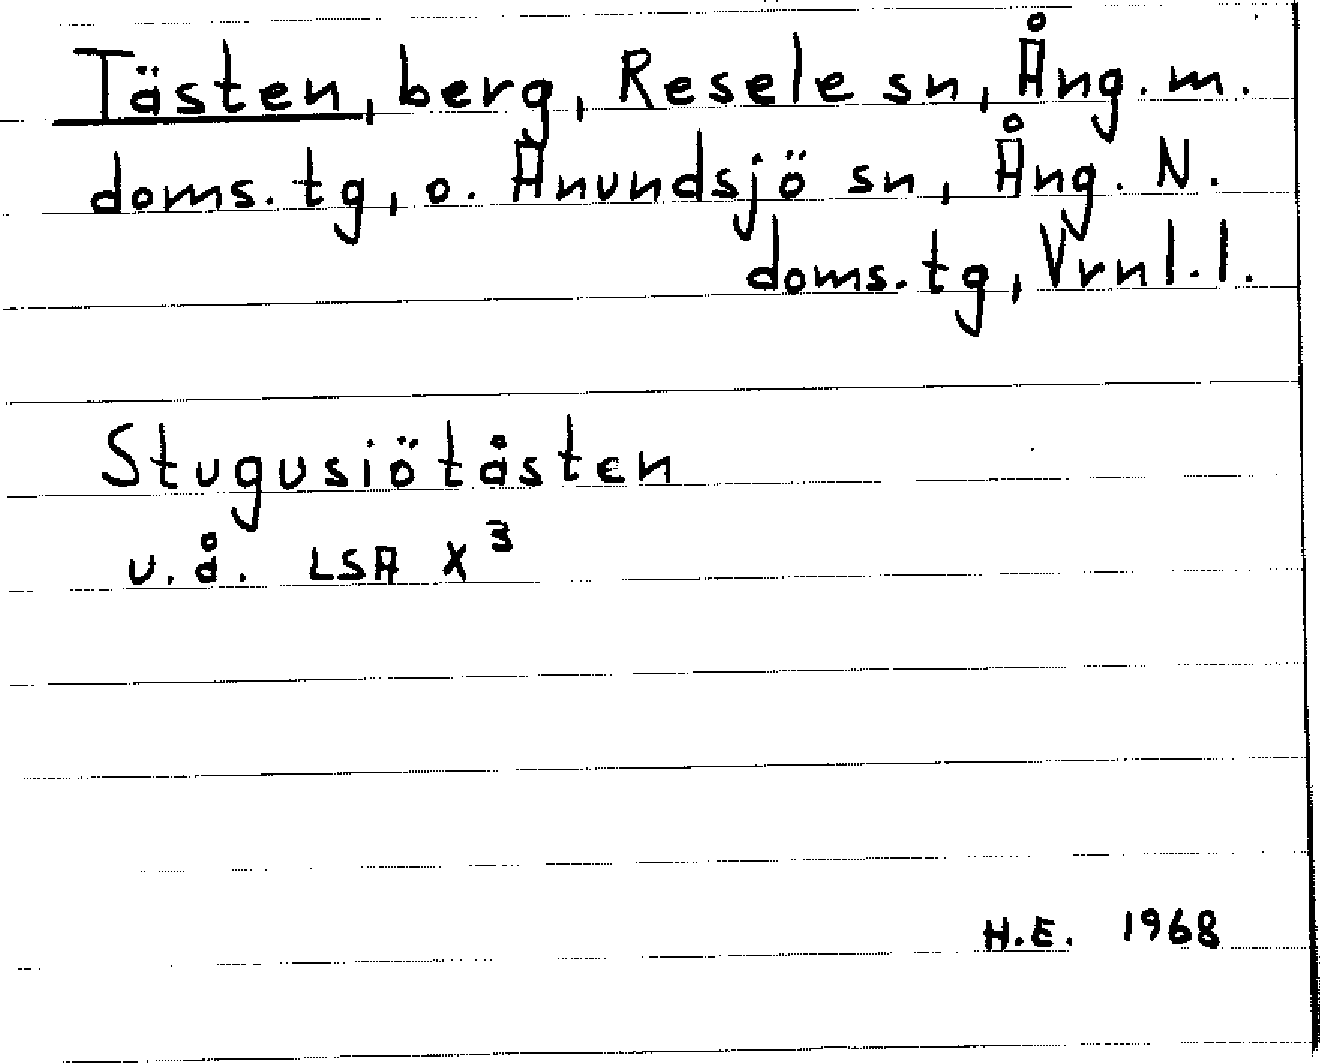 Tästen, berg, Resele sn, Ång. m.
doms.tg, o. Anundsjö sn, Ång. N.
doms.tg, Vrnl.l.
Stugusiötåsten
u.å. LSA X³
H.E. 1968